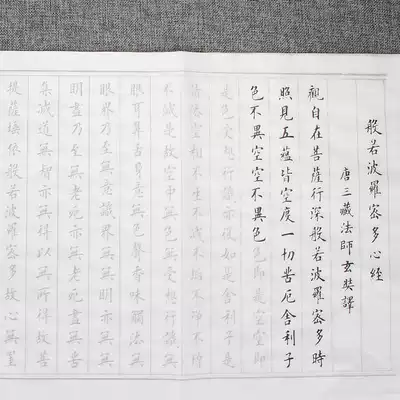 般若波羅蜜多心經
唐三藏法師玄奘譯
觀自在菩薩行深般若波羅蜜多時
照見五蘊皆空度一切苦厄舍利子
色不異空空不異色色即是空空即
是色受想行識亦復如是舍利子是
諸法空相不生不滅不垢不淨不增
不減是故空中無色無受想行識無
眼耳鼻舌身意無色聲香味觸法無
眼界乃至無意識界無無明亦無無
明盡乃至無老死亦無老死盡無苦
集滅道無智亦無得以無所得故菩
提薩埵依般若波羅蜜多故心無罣